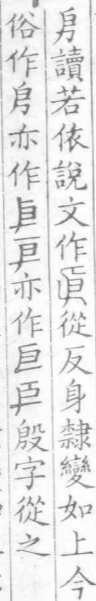 㐆讀若依說文作從反身隸變如上今
俗作亦作亦作殷字從之